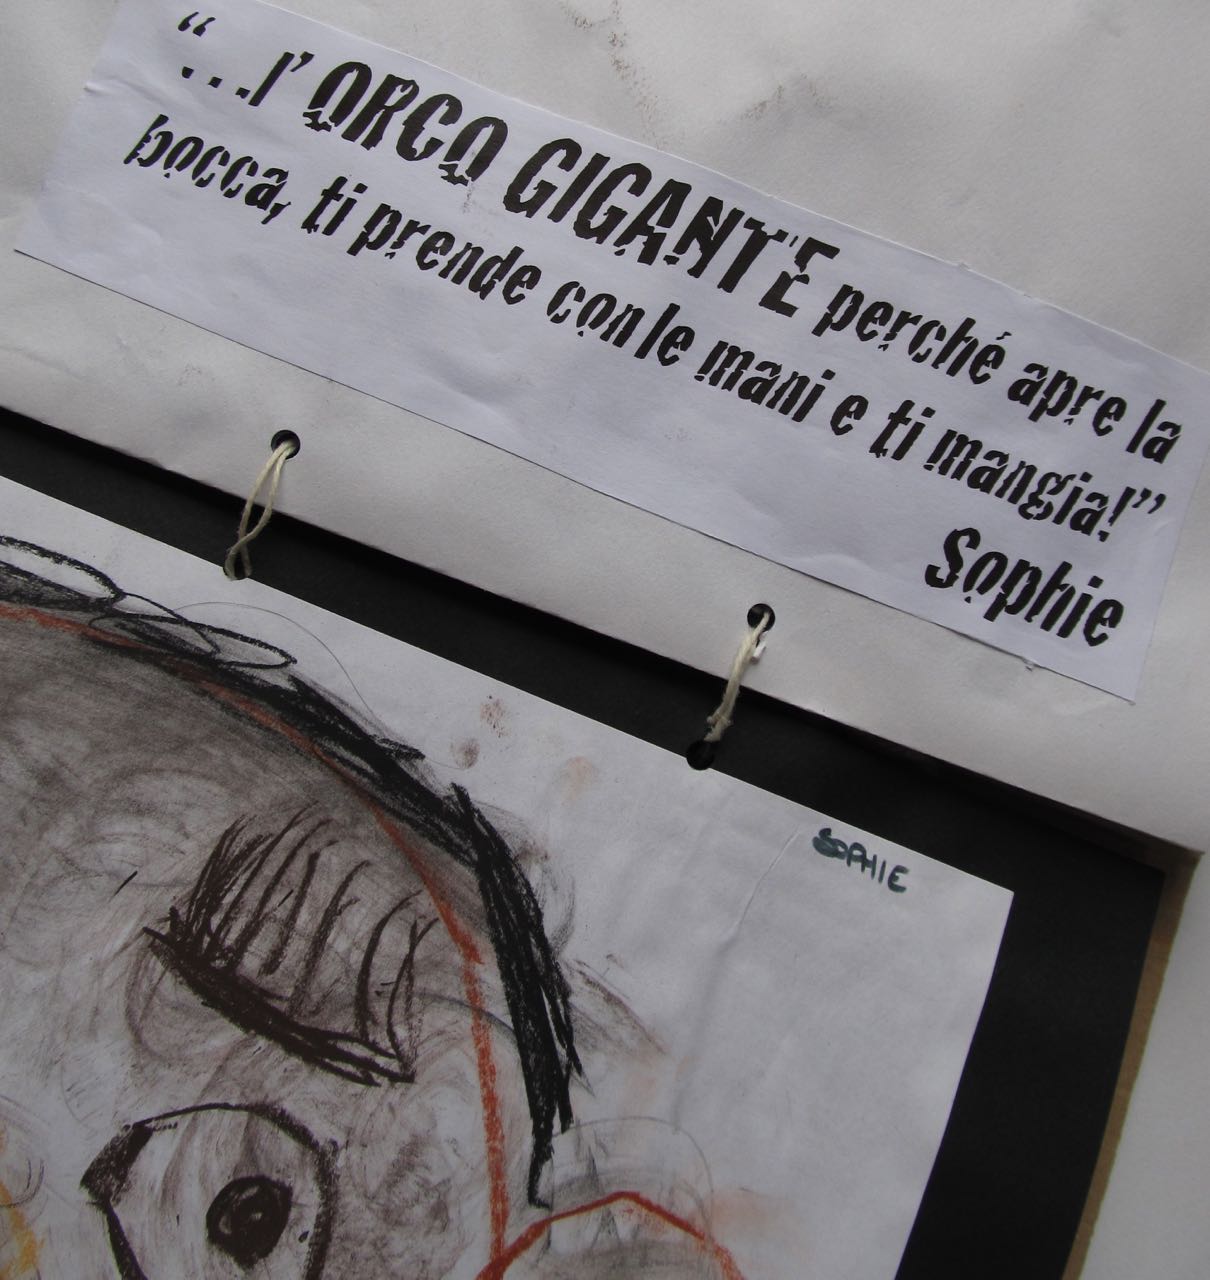 “...l’ORCO GIGANTE perché apre la
bocca, ti prende con le mani e ti mangia!”
Sophie
SOPHIE